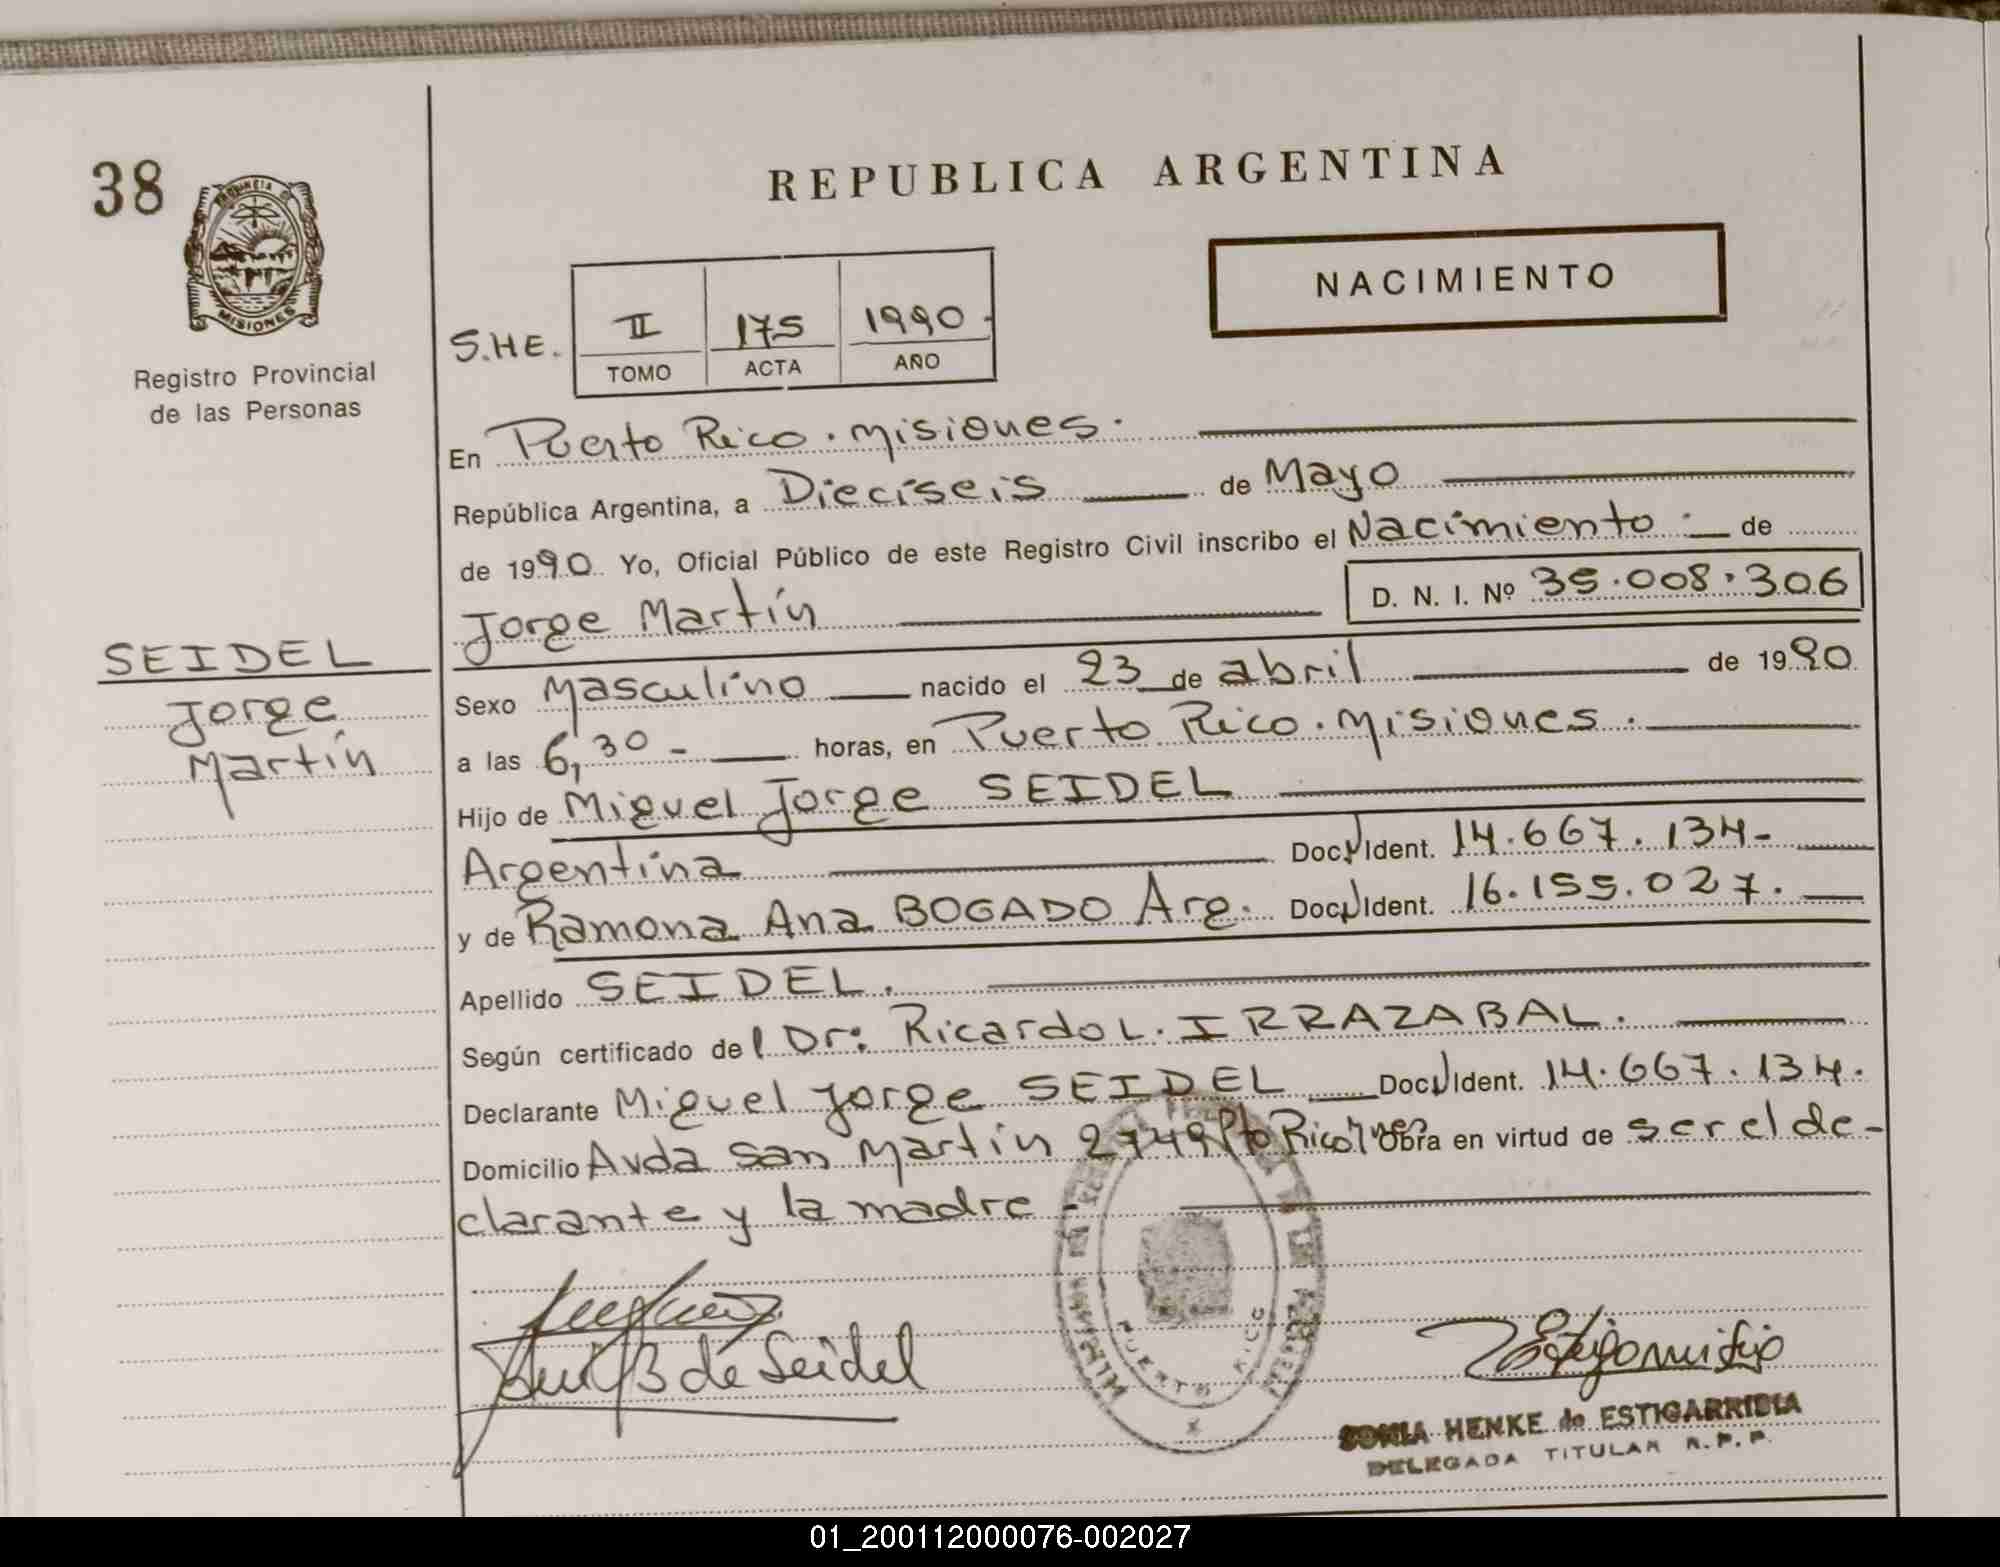 38
PROVINCIA DE
MISIONES
Registro Provincial
de las Personas
REPUBLICA ARGENTINA
NACIMIENTO
S.HE. II 175 1990.
TOMO ACTA AÑO
En Puerto Rico. Misiones.
República Argentina, a Dieciseis de Mayo
de 1990 Yo, Oficial Público de este Registro Civil inscribo el Nacimiento de
Jorge Martín D. N. I. Nº 35.008.306
SEIDEL
Jorge
Martín
Sexo Masculino nacido el 23 de abril de 1990
a las 6,30 - horas, en Puerto Rico. Misiones.
Hijo de Miguel Jorge SEIDEL
Argentina Doc. Ident. 14.667.134-
y de Ramona Ana BOGADO Arg. Doc. Ident. 16.155.027.
Apellido SEIDEL.
Según certificado del Dr: Ricardo L. IRRAZABAL.
Declarante Miguel Jorge SEIDEL Doc. Ident. 14.667.134.
Domicilio Avda San Martín 2749 Pto Rico Obra en virtud de ser el de-
clarante y la madre
B de Seidel
PUERTO RICO
SONIA HENKE de ESTIGARRIBIA
DELEGADA TITULAR R.P.P.
01_200112000076-002027